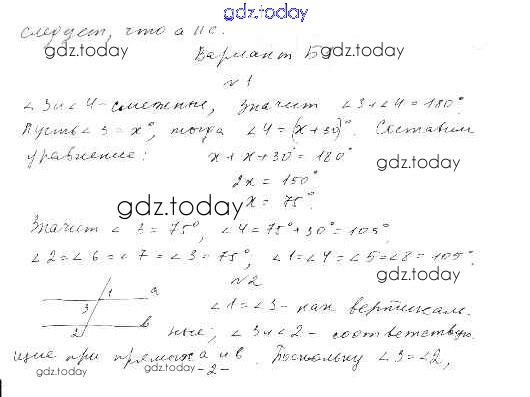 gdz.today
следует, что a || c.
gdz.today
Вариант Б
№1
∠3 и ∠4 - смежные, значит ∠3+∠4=180°.
Пусть ∠3=x°, тогда ∠4=(x+30)°. Составим
уравнение: x+x+30°=180°
gdz.today
2x=150°
x=75°.
gdz.today
Значит ∠3=75°, ∠4=75°+30°=105°,
∠2=∠6=∠7=∠3=75°, ∠1=∠4=∠5=∠8=105°.
№2
gdz.today
1 a
3
∠1=∠3 - как вертикаль-
в
2
ные; ∠3 и ∠2 - соответствую-
щие при прямых a и в. Поскольку ∠3=∠2,
gdz.today
gdz.today
-2-
gdz.today